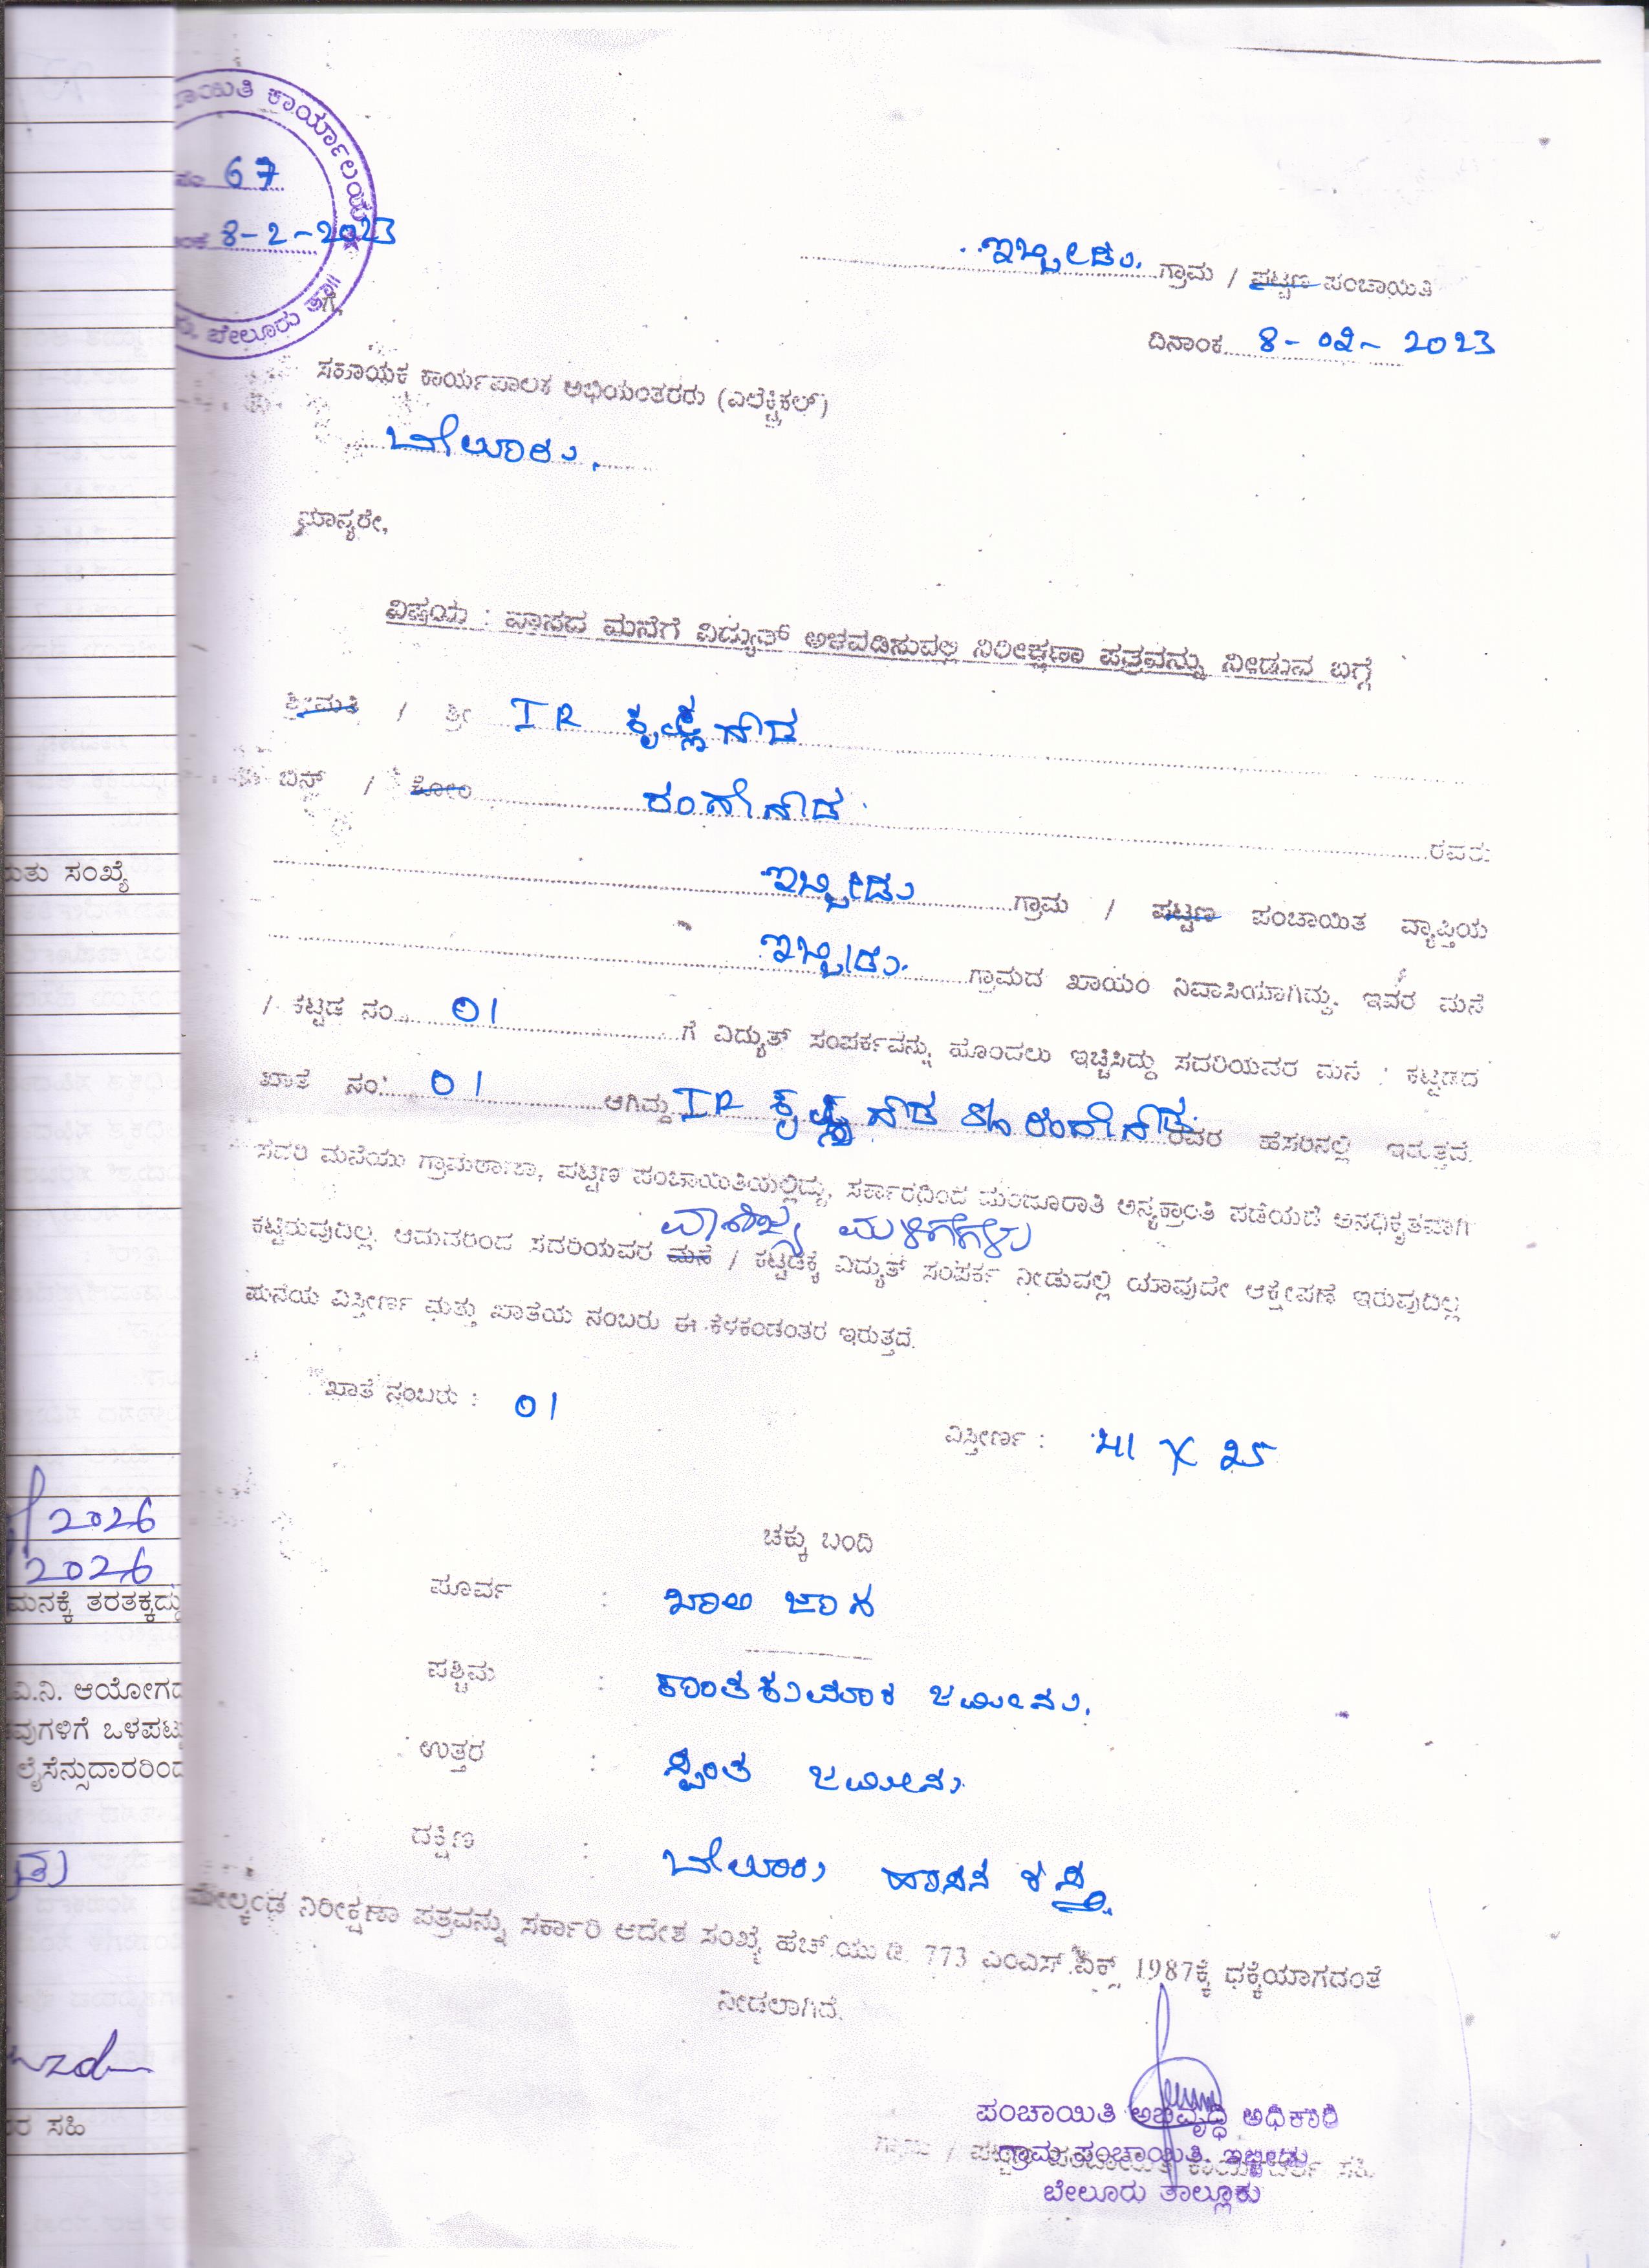 ಾಯಿತಿ ಕಾರ್ಯಾಲಯ
ನಂ 67
ಂಕ 8-2-2023
ಬೇಲೂರು ತಾ॥
ಇಬ್ಬೀಡು. ಗ್ರಾಮ / ಪಟ್ಟಣ ಪಂಚಾಯಿತಿ
ದಿನಾಂಕ 8-02-2023
ಗೆ,
ಸಹಾಯಕ ಕಾರ್ಯಪಾಲಕ ಅಭಿಯಂತರರು (ಎಲೆಕ್ಟ್ರಿಕಲ್)
ಬೇಲೂರು.
ಮಾನ್ಯರೇ,
ವಿಷಯ : ವಾಸದ ಮನೆಗೆ ವಿದ್ಯುತ್ ಅಳವಡಿಸುವಲ್ಲಿ ನಿರೀಕ್ಷಣಾ ಪತ್ರವನ್ನು ನೀಡುವ ಬಗ್ಗೆ
ಶ್ರೀಮತಿ / ಶ್ರೀ IR ಕೃಷ್ಣೇಗೌಡ
ಬಿನ್ / ಕೋಂ ರಂಗೇಗೌಡ ರವರು
ಇಬ್ಬೀಡು ಗ್ರಾಮ / ಪಟ್ಟಣ ಪಂಚಾಯಿತ ವ್ಯಾಪ್ತಿಯ
ಇಬ್ಬೀಡು. ಗ್ರಾಮದ ಖಾಯಂ ನಿವಾಸಿಯಾಗಿದ್ದು, ಇವರ ಮನೆ
/ ಕಟ್ಟಡ ನಂ. 01 ಗೆ ವಿದ್ಯುತ್ ಸಂಪರ್ಕವನ್ನು ಹೊಂದಲು ಇಚ್ಚಿಸಿದ್ದು ಸದರಿಯವರ ಮನೆ : ಕಟ್ಟಡದ
ಖಾತೆ ನಂ: 01 ಆಗಿದ್ದು IR ಕೃಷ್ಣೇಗೌಡ ರಂಗೇಗೌಡ ರವರ ಹೆಸರಿನಲ್ಲಿ ಇರುತ್ತದೆ.
ಸದರಿ ಮನೆಯು ಗ್ರಾಮಠಾಣಾ, ಪಟ್ಟಣ ಪಂಚಾಯಿತಿಯಲ್ಲಿದ್ದು, ಸರ್ಕಾರದಿಂದ ಮಂಜೂರಾತಿ ಅನ್ಯಕ್ರಾಂತಿ ಪಡೆಯದೆ ಅನಧಿಕೃತವಾಗಿ
ವಾಣಿಜ್ಯ ಮಳಿಗೆಗಳು
ಕಟ್ಟಿರುವುದಿಲ್ಲ. ಆದುದರಿಂದ ಸದರಿಯವರ ಮನೆ / ಕಟ್ಟಡಕ್ಕೆ ವಿದ್ಯುತ್ ಸಂಪರ್ಕ ನೀಡುವಲ್ಲಿ ಯಾವುದೇ ಆಕ್ಷೇಪಣೆ ಇರುವುದಿಲ್ಲ
ಮನೆಯ ವಿಸ್ತೀರ್ಣ ಮತ್ತು ಖಾತೆಯ ನಂಬರು ಈ ಕೆಳಕಂಡಂತರ ಇರುತ್ತದೆ.
ಖಾತೆ ನಂಬರು : 01
ವಿಸ್ತೀರ್ಣ : 41 X 25
ಚಕ್ಕು ಬಂದಿ
ಪೂರ್ವ : ಖಾಲಿ ಜಾಗ
ಪಶ್ಚಿಮ : ಕಾಂತಕುಮಾರ ಜಮೀನು.
ಉತ್ತರ : ಸ್ವಂತ ಜಮೀನು
ದಕ್ಷಿಣ : ಬೇಲೂರು ಹಾಸನ ರಸ್ತೆ
ಮೇಲ್ಕಂಡ ನಿರೀಕ್ಷಣಾ ಪತ್ರವನ್ನು ಸರ್ಕಾರಿ ಆದೇಶ ಸಂಖ್ಯೆ ಹೆಚ್.ಯು.ಡಿ. 773 ಎಂಎನ್.ಎಕ್ಸ್ 1987ಕ್ಕೆ ಧಕ್ಕೆಯಾಗದಂತೆ
ನೀಡಲಾಗಿದೆ.
ಪಂಚಾಯಿತಿ ಅಭಿವೃದ್ಧಿ ಅಧಿಕಾರಿ
ಗ್ರಾಮ ಪಂಚಾಯಿತಿ, ಇಬ್ಬೀಡು
ಬೇಲೂರು ತಾಲ್ಲೂಕು
ಸಂಖ್ಯೆ
2026
2026
ಮನಕ್ಕೆ ತರತಕ್ಕದ್ದು
ವಿ.ನಿ. ಆಯೋಗದ
ವುಗಳಿಗೆ ಒಳಪಟ್ಟು
ಲೈಸೆನ್ಸುದಾರರಿಂದ
ರ ಸಹಿ